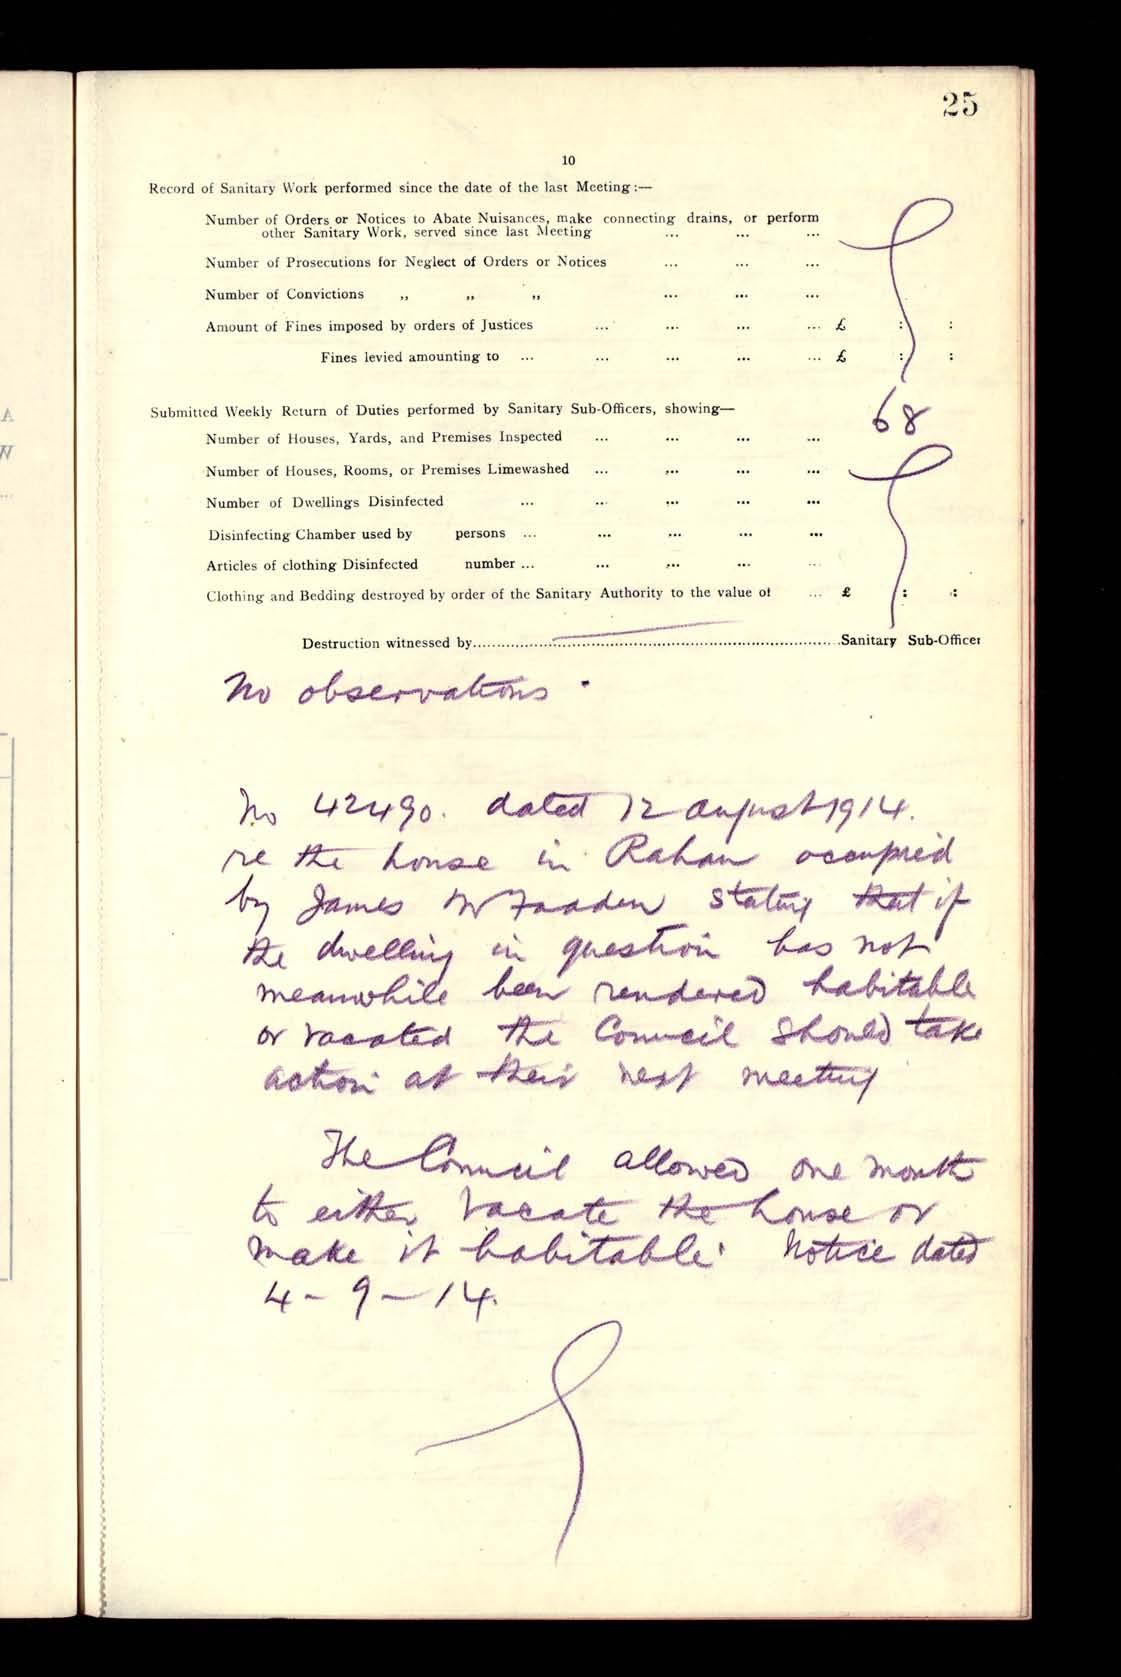 25
10
Record of Sanitary Work performed since the date of the last Meeting :—
Number of Orders or Notices to Abate Nuisances, make connecting drains, or perform
other Sanitary Work, served since last Meeting ... ... ...
Number of Prosecutions for Neglect of Orders or Notices ... ... ...
Number of Convictions „ „ „ ... ... ...
Amount of Fines imposed by orders of Justices ... ... ... ... £ : :
Fines levied amounting to ... ... ... ... ... £ : :
Submitted Weekly Return of Duties performed by Sanitary Sub-Officers, showing—
Number of Houses, Yards, and Premises Inspected ... ... ... ... 68
Number of Houses, Rooms, or Premises Limewashed ... ... ... ...
Number of Dwellings Disinfected ... ... ... ... ...
Disinfecting Chamber used by persons ... ... ... ... ...
Articles of clothing Disinfected number ... ... ... ... ...
Clothing and Bedding destroyed by order of the Sanitary Authority to the value of ... £ : :
Destruction witnessed by..............................Sanitary Sub-Officer
No observations.
No 42490. dated 12 August 1914.
re the house in Rahan occupied
by James McFadden stating that if
the dwelling in question has not
meanwhile been rendered habitable
or vacated the Council should take
action at their next meeting
The Council allowed one month
to either vacate the house or
make it habitable. Notice dated
4 - 9 - 14.